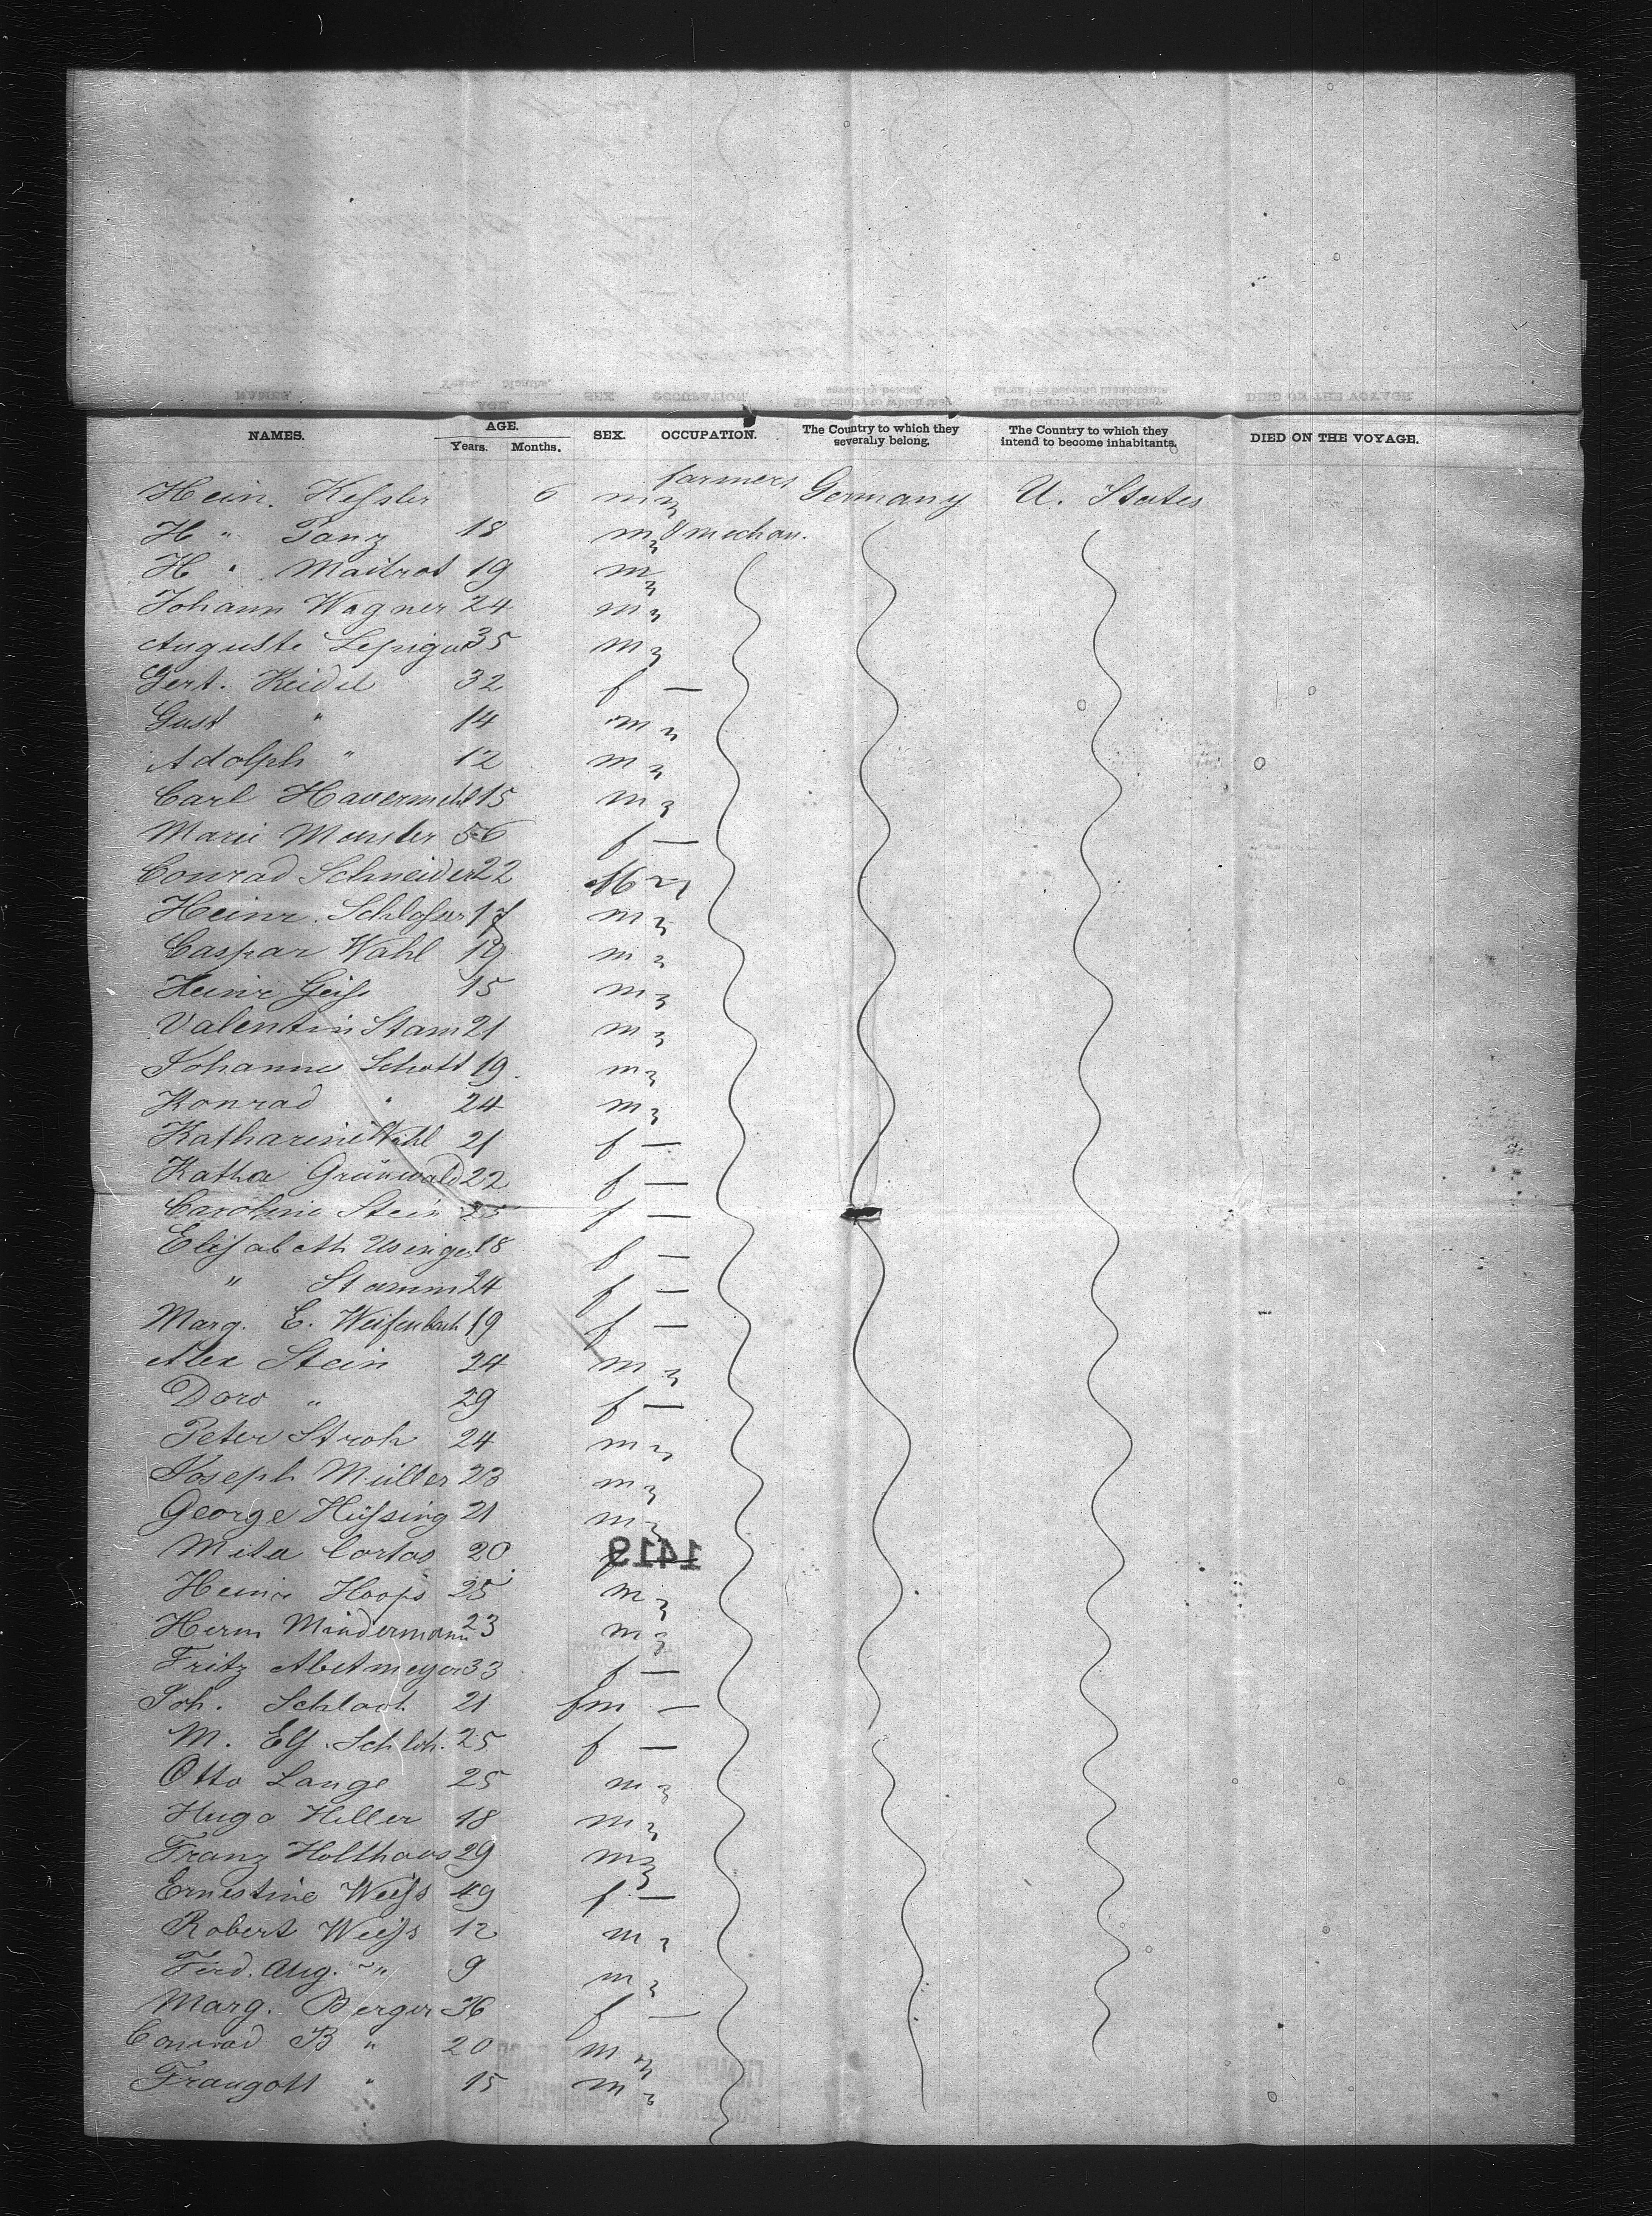 NAMES. AGE. Years. Months. SEX. OCCUPATION. The Country to which they severally belong. The Country to which they intend to become inhabitants. DIED ON THE VOYAGE.
Hein. Keſsler 6 m farmers Germany U. States
H " Panz 18 m & mechan.
H " Maitrot 19 m
Johann Wagner 24 m
Auguste 35 m
Gert. Keidel 32 f —
Gust " 14 m
Adolph " 12 m
Carl Havermehl 15 m
Marie Monster 56 f —
Conrad Schneider 22 M
Heinr. Schloſser 17 m
Caspar Wahl 19 m
Heinr Geiſs 15 m
Valentin Stam 21 m
Johannes Schott 19 m
Konrad " 24 m
Katharine Wahl 21 f —
Katha Grünwald 22 f —
Caroline Stein 25 f —
Eliſabeth Usinger 18 f —
" Stamm 24 f —
Marg. E. Weiſenbach 19 f —
Alex Stein 24 m
Doro " 29 f —
Peter Stroh 24 m
Joseph Müller 23 m
George Hüſsing 21 m
Meta Cortos 20 f 1419
Heinr Hoops 25 m
Herm Mindermann 23 m
Fritz Abetmeyer 33 f —
Joh. Schlach 21 fm —
M. Elſ. Schlch. 25 f —
Otto Lange 25 m
Hugo Hiller 18 m
Franz Holthaus 29 m
Ernestine Weiſs 49 f —
Robert Weiſs 12 m
Ferd. Aug. " 9 m
Marg. Berger 36 f —
Conrad B " 20 m
Fraugott " 15 m